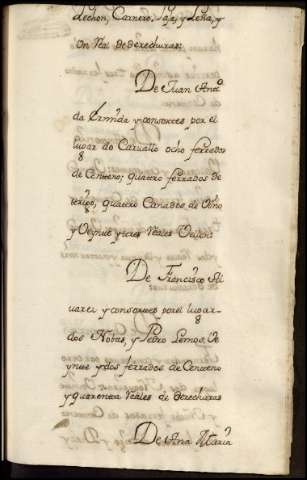 Lechon, Carnero, Paja, y Leña, y
Un Real de derechuras.
De Juan Anto
da Ermida y consortes por el
lugar de Carvallo ocho ferrados
8
de Centeno; quatro ferrados de
trigo, quatro Canados de Vino
y Veynte y tres Reales Vellon
De Francisco Sil
varei y consortes por el lugar
8
dos Nobas, y Pedro Lemos, Ve
ynte y dos ferrados de Centeno
y quarenta Reales de derechuras
De Ana Maria